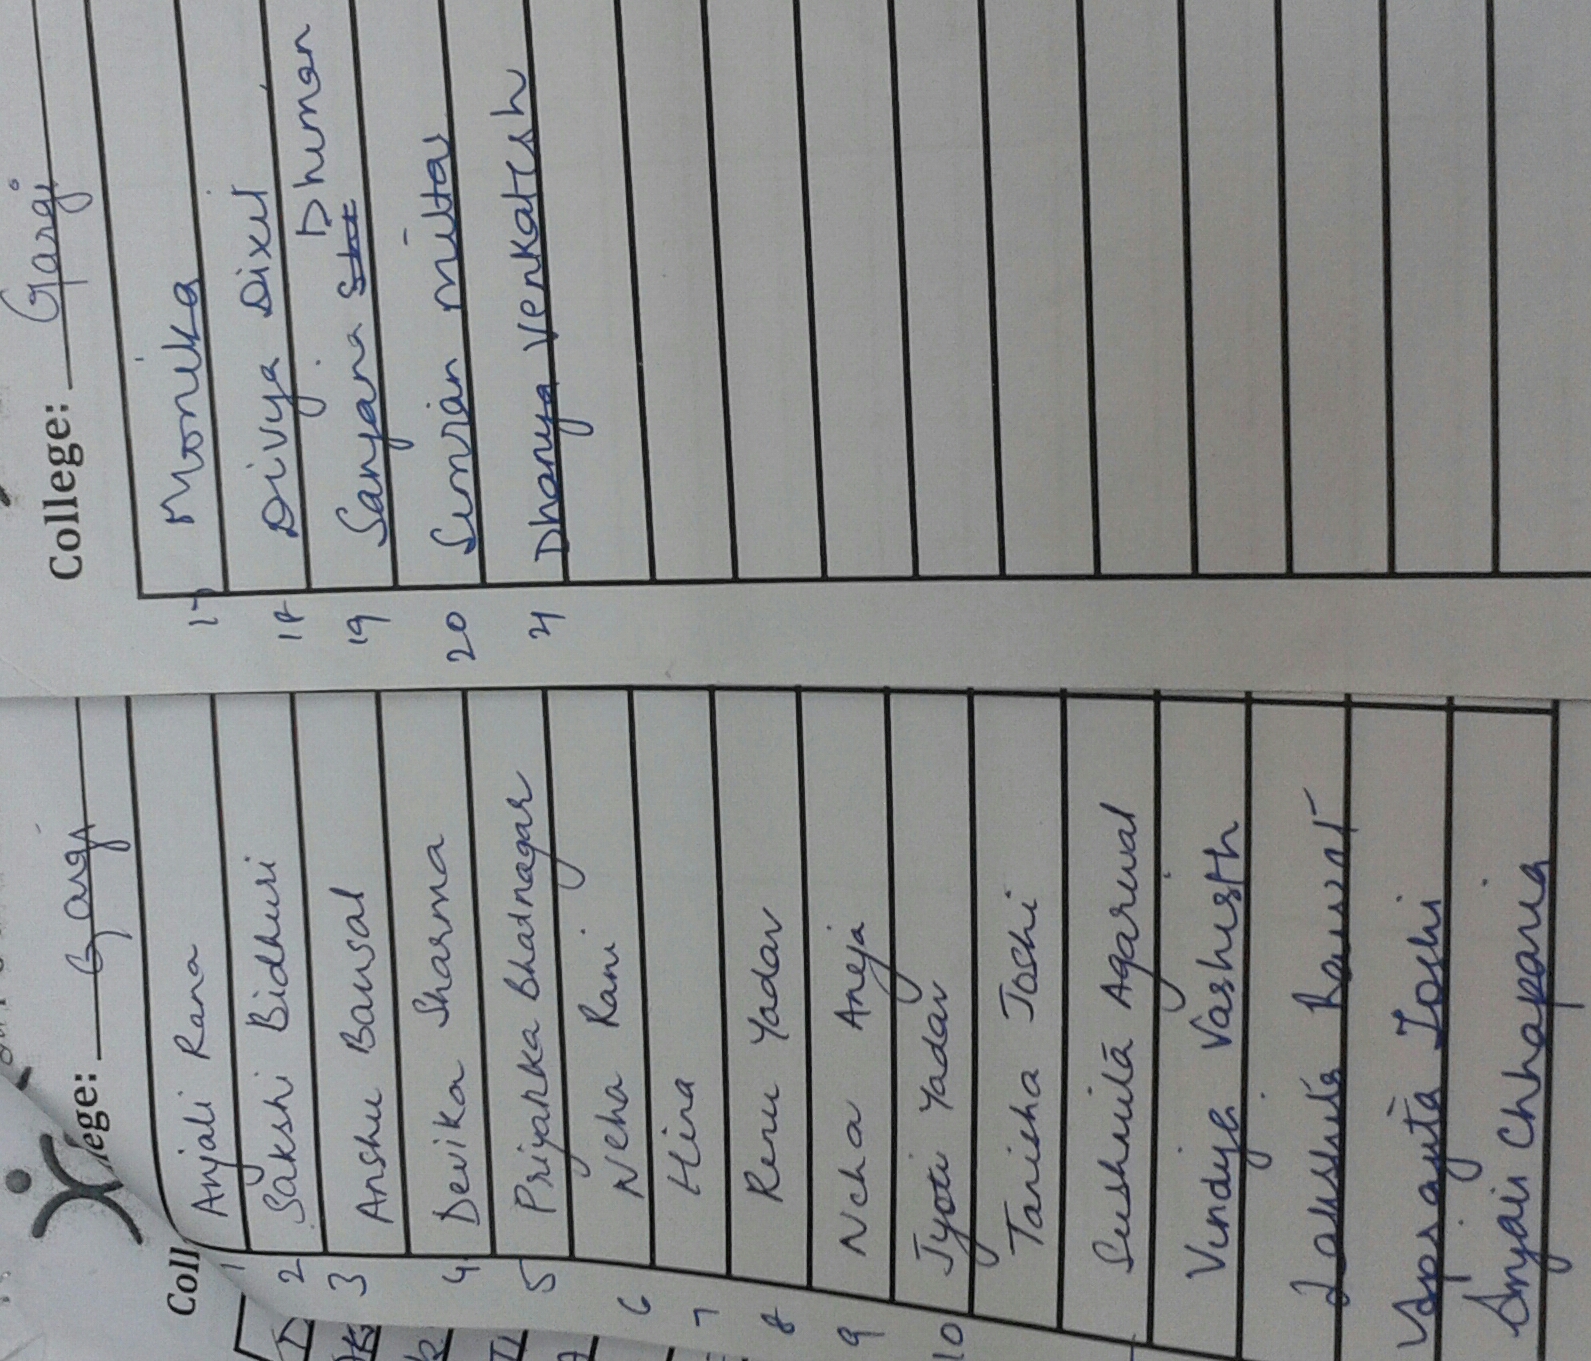 College: Gargi
1 Anjali Rana
2 Sakshi Bidhuri
3 Anshu Bansal
4 Devika Sharma
5 Priyanka Bhatnagar
6 Neha Rani
7 Hina
8 Renu Yadav
9 Neha Aneja
10 Jyoti Yadav
Tanisha Joshi
Sushmita Agarwal
Vindya Vashisth
Lakshita Rawat
Aprajita Joshi
Anjali Chhaparia
Coll
College: Gargi
17 Monika
18 Divya Dixit
19 Sanjana Dhiman
20 Simran Mittal
21 Dhanya Venkatesh